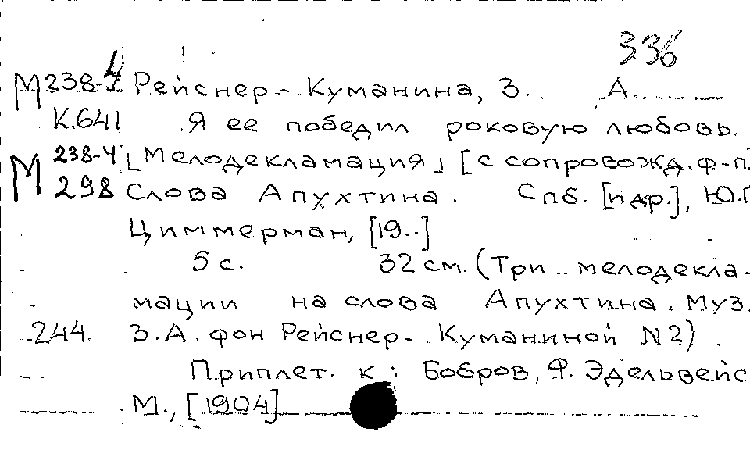 336
М 238-4 Рейснер-Куманина, З. А.
К.641 Я ее победил роковую любовь.
М 238-4 [Мелодекламация] [с сопровожд. ф-п
298 Слова Апухтина. Спб. [и др.], Ю.Г
Циммерман, [19..]
5 с. 32 см. (Три мелодекла-
мации на слова Апухтина. Муз.
244. З.А. фон Рейснер-Куманиной №2).
Приплет. к: Бобров, Ф. Эдельвейс
М., [1904]